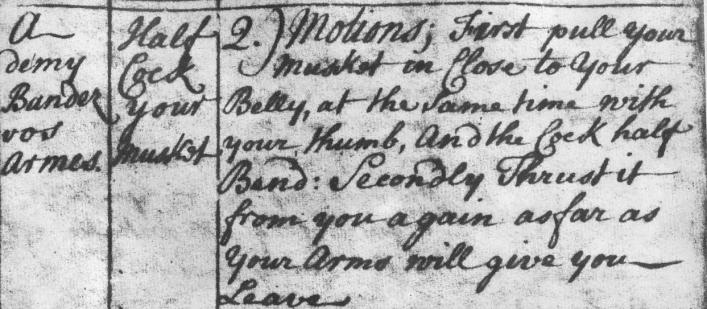 A
demy
Bandez
vos
Armes.
Half
Cock
your
Musket
2.) Motions; First pull your
Musket in Close to Your
Belly, at the Same time with
your thumb, And the Cock half
Bend: Secondly Thrust it
from you again as far as
Your Arms will give you
Leave